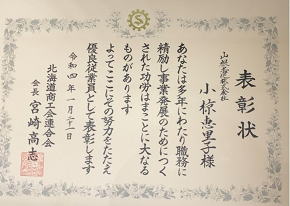 表彰状
小椋恵里子様
あなたは多年にわたり職務に
精励し事業発展のためにつく
された功労はまことに大なる
ものがあります
よってここにその努力をたたえ
優良従業員として表彰します
令和四年一月二十一日
北海道商工会連合会
会長 宮崎高志